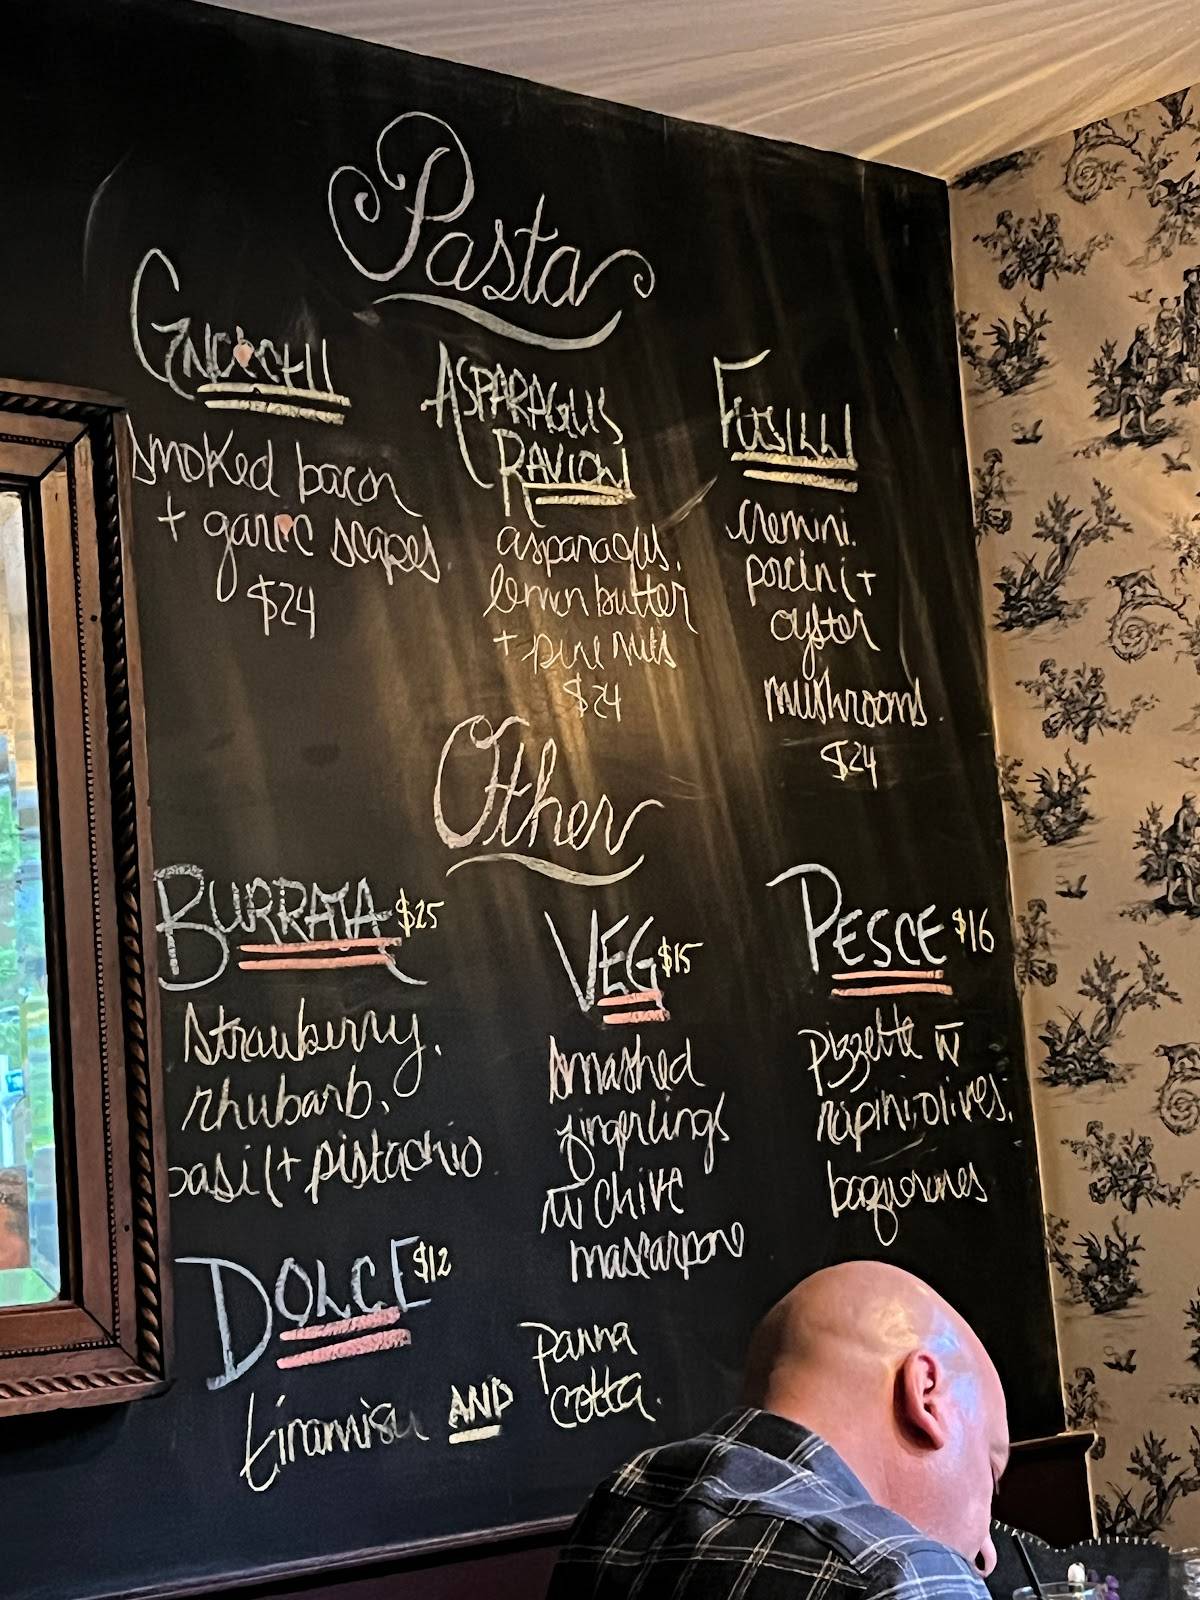 Pasta
GNOCCHI
smoked bacon
+ garlic scapes
$24
ASPARAGUS
RAVIOLI
asparagus,
lemon butter
+ pine nuts
$24
FUSILLI
cremini,
porcini +
oyster
mushrooms
$24
Other
BURRATA $25
strawberry,
rhubarb,
basil + pistachio
VEG $15
smashed
fingerlings
w chive
mascarpone
PESCE $16
pizzette w
rapini, olives,
boquerones
DOLCE $12
tiramisu AND
panna
cotta